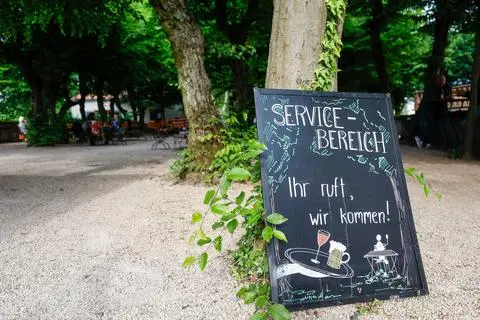 SERVICE-
BEREICH
Ihr ruft,
wir kommen!